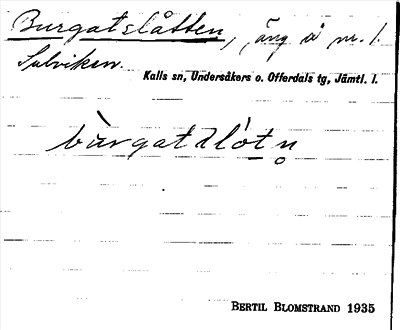 Burgatslåtten, äng å nr. 1
Sulviken.
Kalls sn, Undersåkers o. Offerdals tg, Jämtl. l.
BERTIL BLOMSTRAND 1935